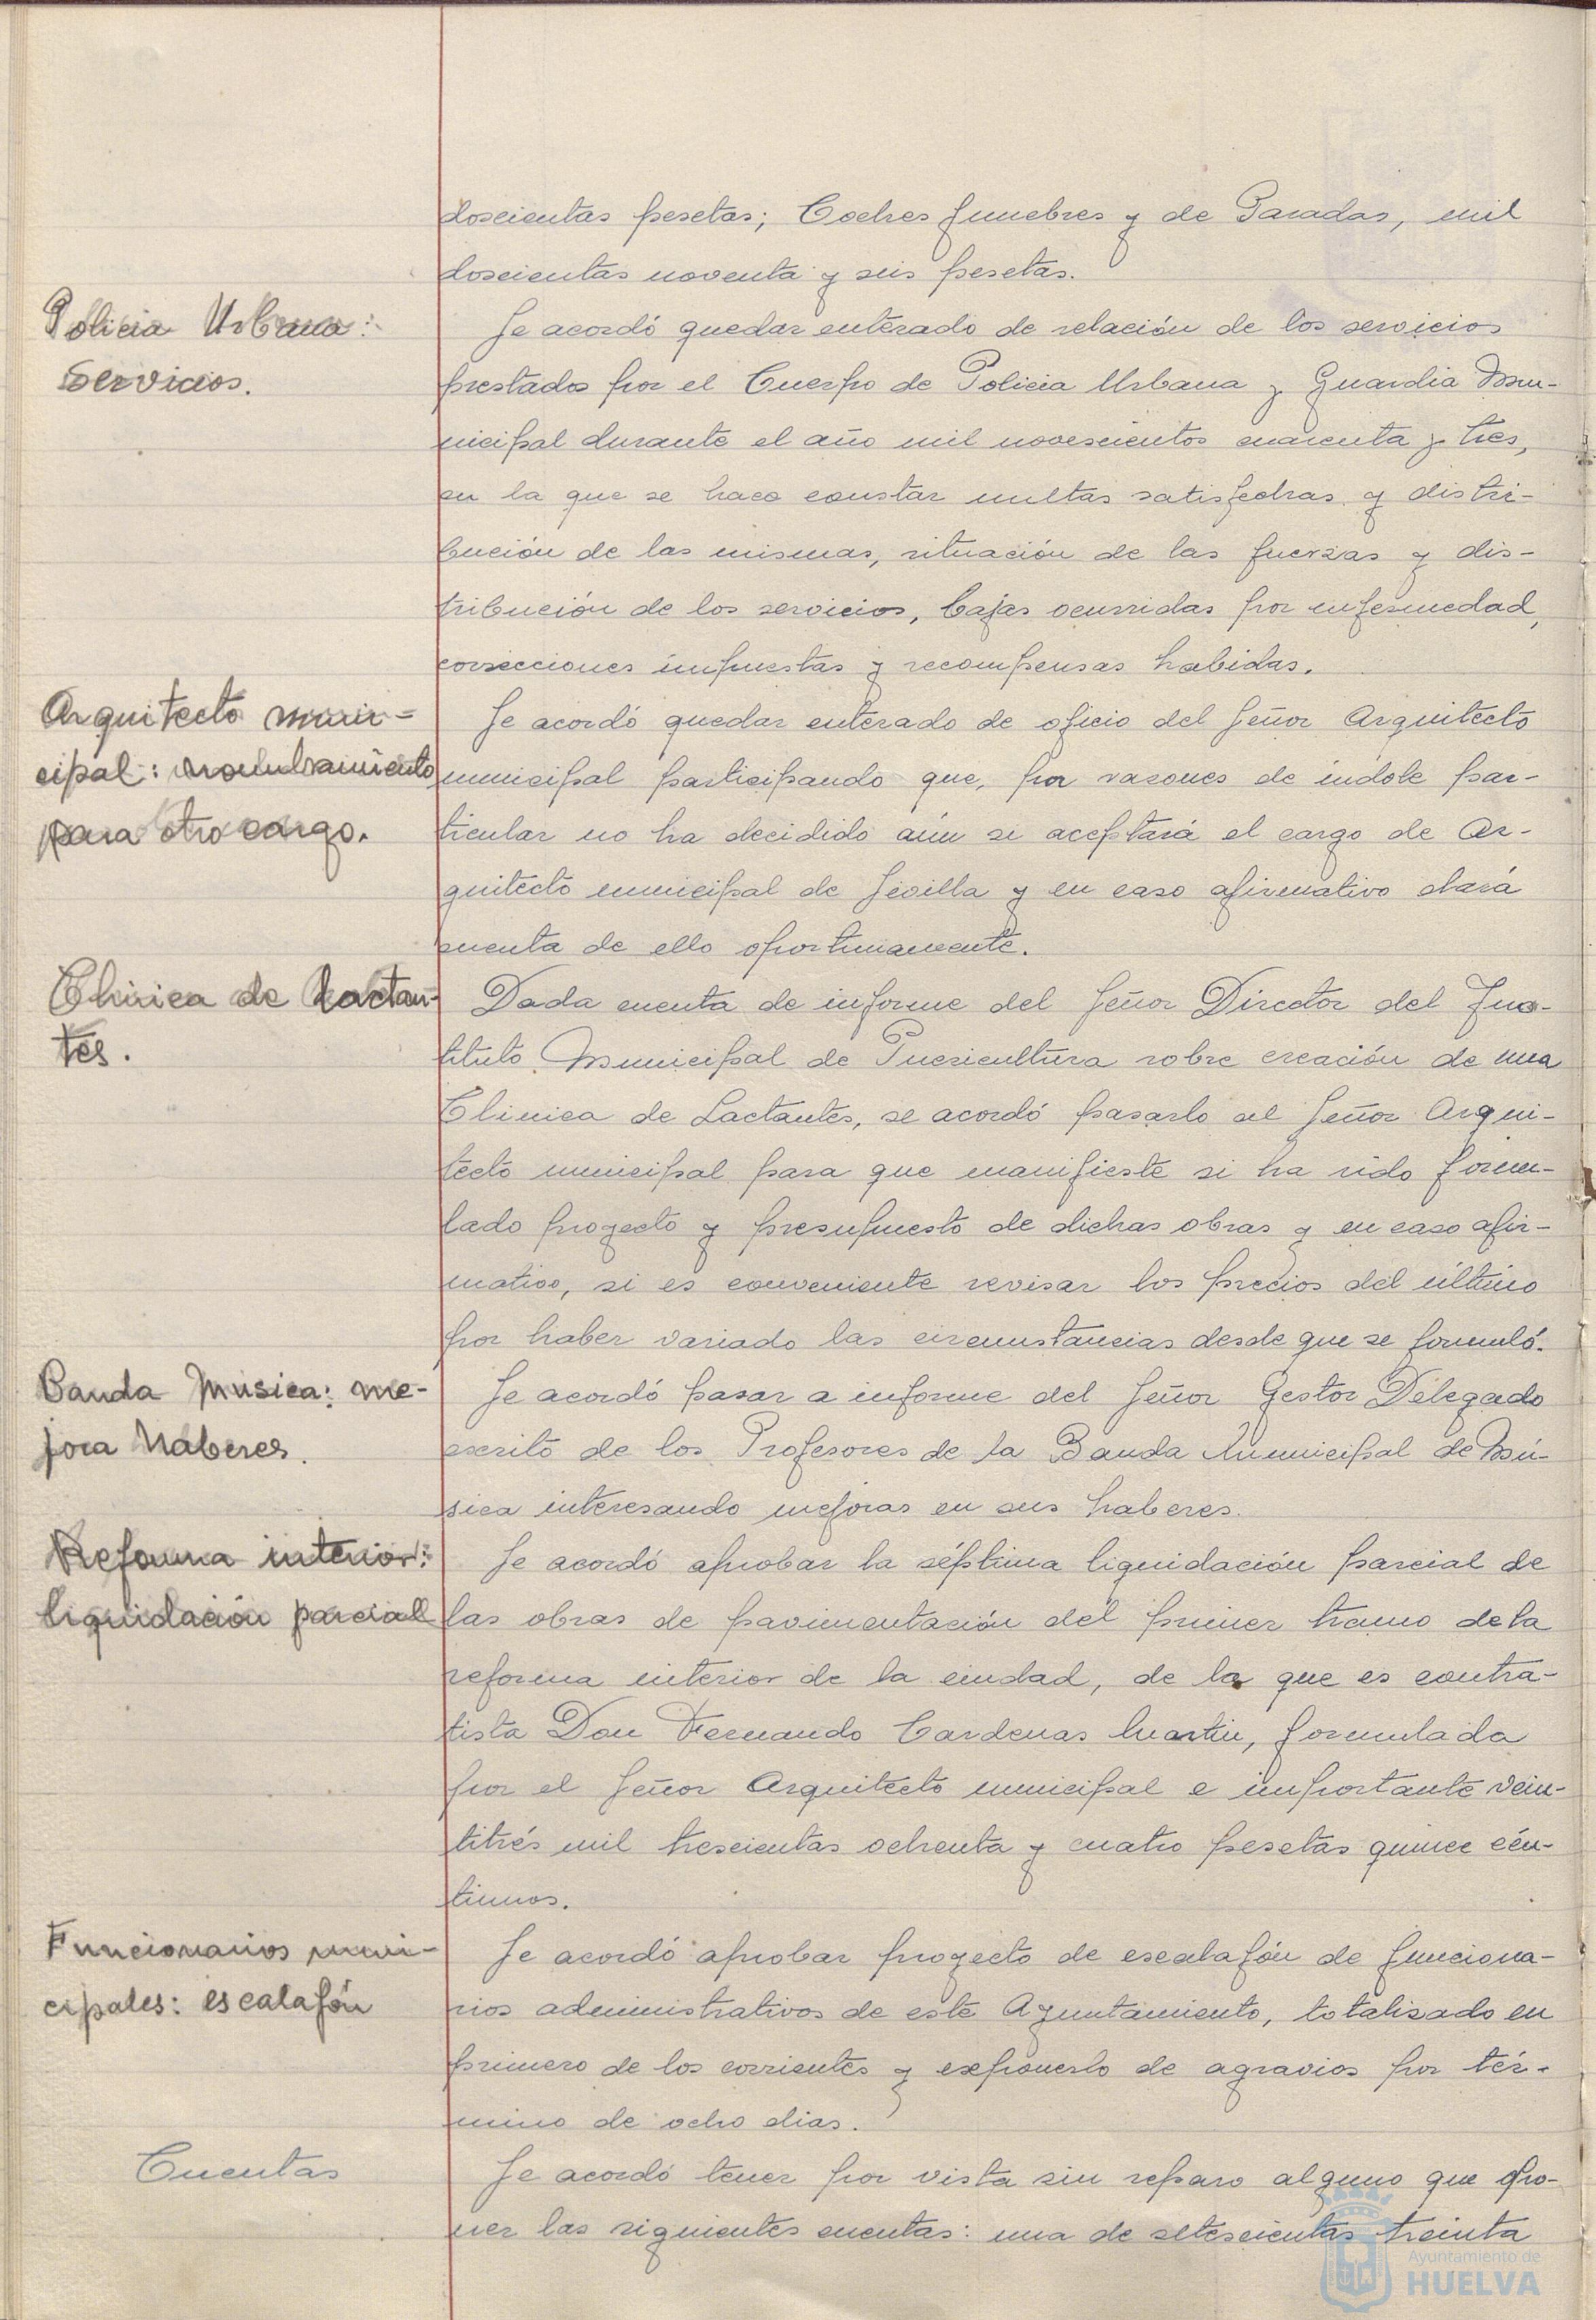 doscientas pesetas; Coches funebres y de Paradas, mil
doscientas noventa y seis pesetas.
Policia Urbana:
Servicios.
Se acordó quedar enterado de relación de los servicios
prestados por el Cuerpo de Policia Urbana y Guardia Mu-
nicipal durante el año mil novescientos cuarenta y tres,
en la que se hace constar multas satisfechas y distri-
bución de las mismas, situación de las fuerzas y dis-
tribución de los servicios, bajas ocurridas por enfermedad,
correcciones impuestas y recompensas habidas.
Arquitecto muni-
cipal: nombramiento
para otro cargo.
Se acordó quedar enterado de oficio del Señor Arquitecto
municipal participando que, por razones de indole par-
ticular no ha decidido aún si aceptará el cargo de Ar-
quitecto municipal de Sevilla y en caso afirmativo dará
cuenta de ello oportunamente.
Clinica de Lactan-
tes.
Dada cuenta de informe del Señor Director del Ins-
tituto Municipal de Puericultura sobre creación de una
Clinica de Lactantes, se acordó pasarlo al Señor Arqui-
tecto municipal para que manifieste si ha sido formu-
lado proyecto y presupuesto de dichas obras y en caso afir-
mativo, si es conveniente revisar los precios del último
por haber variado las circunstancias desde que se formuló.
Banda Musica: me-
jora haberes.
Se acordó pasar a informe del Señor Gestor Delegado
escrito de los Profesores de la Banda Municipal de Mú-
sica interesando mejoras en sus haberes.
Reforma interior:
liquidación parcial
Se acordó aprobar la séptima liquidación parcial de
las obras de pavimentación del primer tramo de la
reforma interior de la ciudad, de la que es contra-
tista Don Fernando Cardenas Martin, formulada
por el Señor Arquitecto municipal e importante vein-
titrés mil trescientas ochenta y cuatro pesetas quince cén-
timos.
Funcionarios muni-
cipales: escalafón
Se acordó aprobar proyecto de escalafón de funciona-
rios administrativos de este Ayuntamiento, totalizado en
primero de los corrientes y exponerlo de agravios por tér-
mino de ocho dias.
Cuentas
Se acordó tener por vista sin reparo alguno que opo-
ner las siguientes cuentas: una de setescientas treinta
Ayuntamiento de
HUELVA